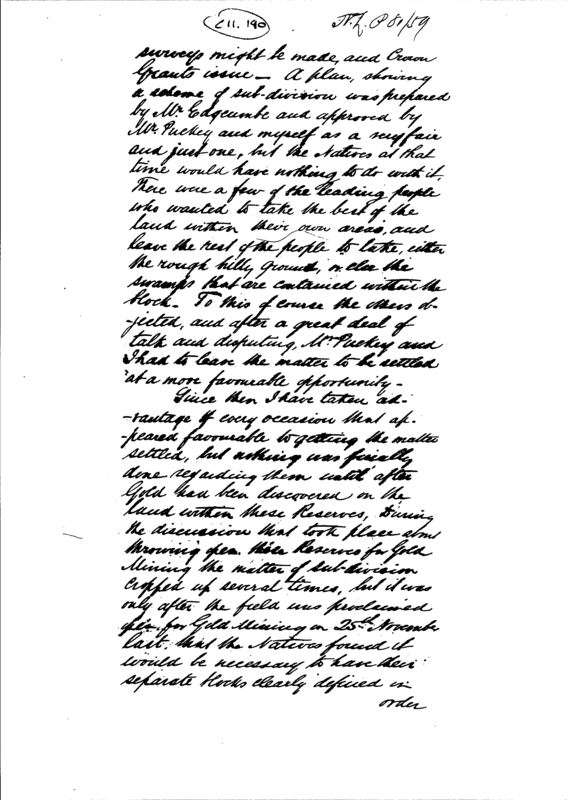 C11. 190
N.L.P 80/59
surveys might be made, and Crown
Grants issue — A plan, showing
a scheme of sub-division was prepared
by Mr. Edgcumbe and approved by
Mr. Puckey and myself as a very fair
and just one, but the Natives at that
time would have nothing to do with it.
There were a few of the leading people
who wanted to take the best of the
land within their own areas, and
leave the rest of the people to take, either
the rough hilly ground, or else the
swamps that are contained within the
block. To this of course the others ob-
-jected, and after a great deal of
talk and disputing, Mr. Puckey and
I had to leave the matter to be settled
at a more favourable opportunity —
Since then I have taken ad-
-vantage of every occasion that ap-
-peared favourable to getting the matter
settled, but nothing was finally
done regarding them until after
Gold had been discovered on the
land within these Reserves, During
the discussion that took place about
throwing open these Reserves for Gold
Mining the matter of sub-division
cropped up several times, but it was
only after the field was proclaimed
open for Gold Mining on 25th November
last, that the Natives found it
would be necessary to have their
separate blocks clearly defined in
order